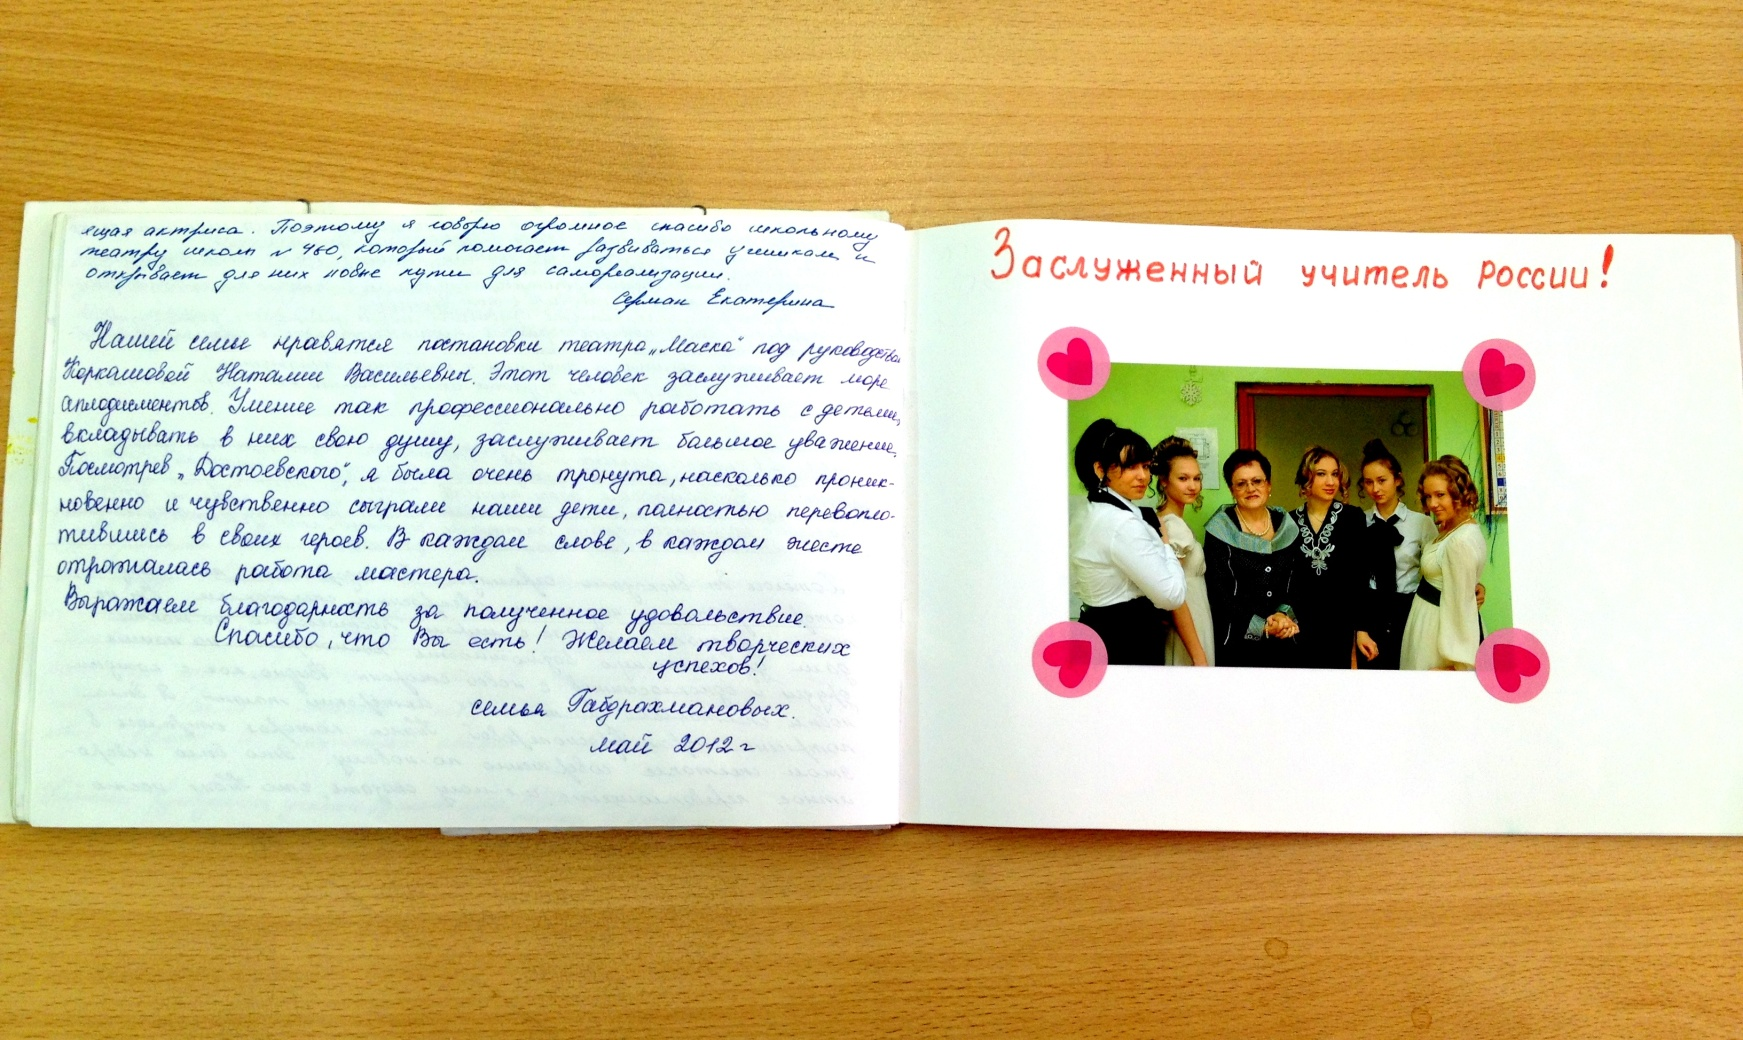 ящая актриса. Поэтому я говорю огромное спасибо школьному
театру школы № 460, который помогает развиваться ученикам и
открывает для них новые пути для самореализации.
Серман Екатерина
Нашей семье нравятся постановки театра „Маска" под руководством
Коркашовой Наталии Васильевны. Этот человек заслуживает море
аплодисментов. Умение так профессионально работать с детьми,
вкладывать в них свою душу, заслуживает большое уважение.
Посмотрев „Достоевского", я была очень тронута, насколько проник-
новенно и чувственно сыграли наши дети, полностью перевопло-
тившись в своих героев. В каждом слове, в каждом жесте
отражалась работа мастера.
Выражаем благодарность за полученное удовольствие.
Спасибо, что Вы есть! Желаем творческих
успехов!
семья Габдрахмановых.
май 2012 г
Заслуженный учитель России!